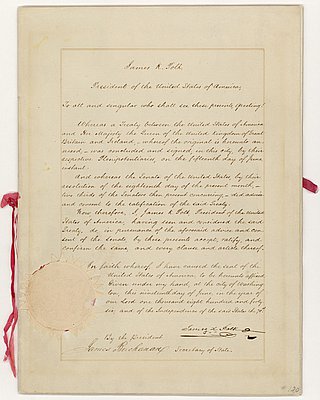 James K. Polk
President of the United States of America,
To all and singular who shall see these presents, Greeting:
Whereas a Treaty between the United States of America
and Her Majesty the Queen of the United Kingdom of Great
Britain and Ireland, whereof the original is hereunto an-
nexed, was concluded and signed in this city, by their
respective Plenipotentiaries, on the fifteenth day of June
instant.
And whereas the Senate of the United States, by their
resolution of the eighteenth day of the present month,
two thirds of the Senators then present concurring, did advise
and consent to the ratification of the said Treaty:
Now therefore, I, James K. Polk, President of the United
States of America, having seen and considered the said
Treaty, do, in pursuance of the aforesaid advice and con-
sent of the Senate, by these presents accept, ratify, and
confirm the same, and every clause and article thereof.
In faith whereof I have caused the seal of the
United States of America to be hereunto affixed.
Given under my hand, at the city of Washing-
ton, this nineteenth day of June, in the year of
our Lord one thousand eight hundred and forty
six, and of the Independence of the said States the
James K. Polk
By the President
James Buchanan
Secretary of State.